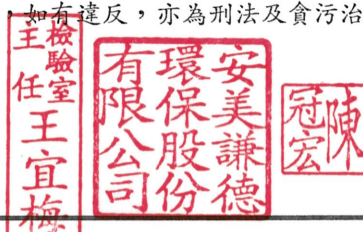 ，如有違反，亦為刑法及貪污治
檢驗室
主任王宜梅
安美謙德
環保股份
有限公司
陳
冠宏